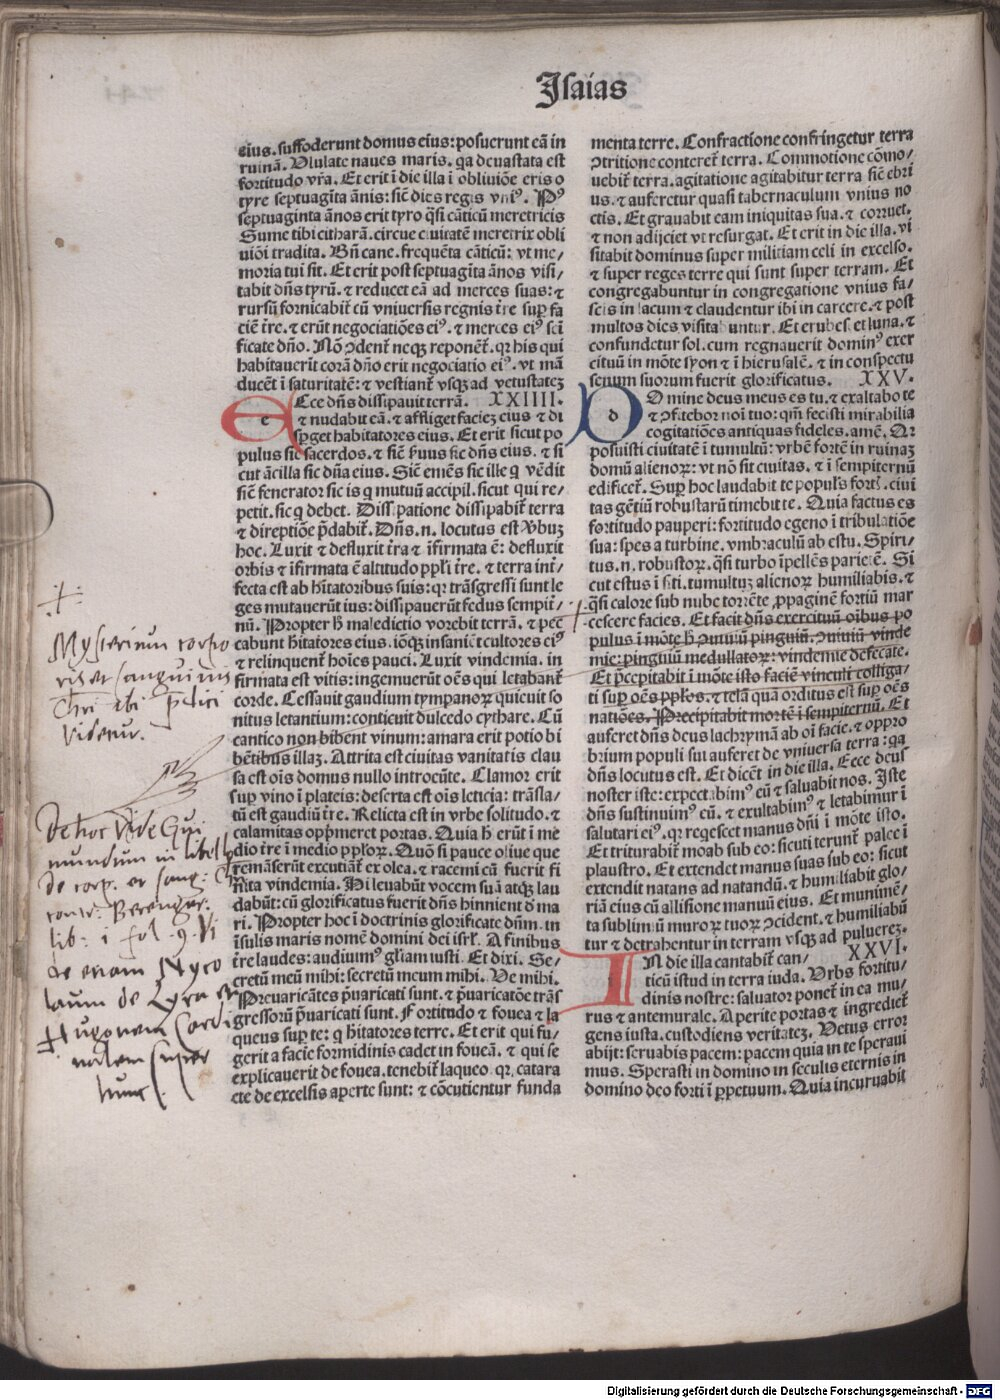 Isaias
eius. suffoderunt domus eius: posuerunt eā in
ruinā. Ululate naues maris. qa deuastata est
fortitudo vr̄a. Et erit ī die illa ī obliuiōe eris o
tyre septuagīta ānis: sic̄ dies regis vniꝰ. Pꝰ
septuaginta ānos erit tyro q̄si cāticū meretricis
Sume tibi citharā. circue ciuitatē meretrix obli
uiōi tradita. Bn̄ cane. frequēta cāticū: vt me/
moria tui sit. Et erit post septuagīta ānos visi/
tabit dn̄s tyrū. ⁊ reducet eā ad merces suas: ⁊
rursū fornicabit̄ cū vniuersis regnis tr̄e sup̱ fa
ciē tr̄e. ⁊ erūt negociatiōes eiꝰ. ⁊ merces eiꝰ scī
ficate dn̄o. Nō ꝯdent̄ neqꝫ reponēt̄. qꝛ his qui
habitauerīt corā dn̄o erit negociatio eiꝰ. vt mā
ducēt ī saturitatē: ⁊ vestiant̄ vsqꝫ ad vetustateꝫ
Ecce dn̄s dissipauit terrā. XXIIII.
⁊ nudabit eā. ⁊ affliget facieꝫ eius ⁊ di
sp̱get habitatores eius. Et erit sicut po
pulus sic sacerdos. ⁊ sic̄ ẜuus sic dn̄s eius. ⁊ si
cut ācilla sic dn̄a eius. Sic̄ emēs sic ille q vēdit
sic̄ fenerator sic is q mutuū accipit. sicut qui re/
petit. sic q debet. Dissipatione dissipabit̄ terra
⁊ direptiōe p̄dabit̄. Dn̄s .n. locutus est v̄buꝫ
hoc. Luxit ⁊ defluxit tr̄a ⁊ īfirmata ē: defluxit
orbis ⁊ īfirmata ē altitudo ppl̄i tr̄e. ⁊ terra int̄/
fecta est ab hītatoribus suis: qꝛ trāsgressi sunt le
ges mutauerūt ius: dissipauerūt fedus sempit̄/
nū. Propter h̄ maledictio vorebit terrā. ⁊ pec
cabunt hītatores eius. iōqꝫ insaniēt cultores eiꝰ
⁊ relinquent̄ hoīes pauci. Luxit vindemia. in
firmata est vitis: ingemuerūt oēs qui letabant̄
corde. Cessauit gaudium tympanoꝝ quieuit so
nitus letantium: conticuit dulcedo cythare. Cū
cantico non bibent vinum: amara erit potio bi
bētibus illaꝫ. Attrita est ciuitas vanitatis clau
sa est oīs domus nullo introeūte. Clamor erit
sup̱ vino ī plateis: deserta est oīs leticia: trāsla/
tū est gaudiū tr̄e. Relicta est in vrbe solitudo. ⁊
calamitas opp̄meret portas. Quia h̄ erūt ī me
dio tr̄e ī medio pp̱loꝝ. Quō si pauce oliue que
remāserūt excutiāt̄ ex olea. ⁊ racemi cū fuerit fi
nita vindemia. Hi leuabūt vocem suā atqꝫ lau
dabūt: cū glorificatus fuerit dn̄s hinnient d̄ ma
ri. Propter hoc ī doctrinis glorificate dn̄m. in
īsulis maris nomē domini dei isrł. A finibus
tr̄e laudes: audiuimꝰ gl̄iam iusti. Et dixi. Se/
cretū meū mihi: secretū meum mihi. Ve mihi.
Preuaricātes p̄uaricati sunt. ⁊ p̄uaricatōe trās
gressorū p̄uaricati sunt. Fortitudo ⁊ fouea ⁊ la
queus sup̱ te: q hītatores terre. Et erit qui fu/
gerit a facie formidinis cadet in foueā. ⁊ qui se
explicauerit de fouea. tenebit̄ laqueo. qꝛ catara
cte de excelsis aperte sunt: ⁊ cōcutientur funda
menta terre. Confractione confringetur terra
ꝯtritione conteret̄ terra. Commotione cōmo/
uebit̄ terra. agitatione agitabitur terra sic̄ ebri
us. ⁊ auferetur quasi tabernaculum vnius no
ctis. Et grauabit eam iniquitas sua. ⁊ corruet.
⁊ non adijciet vt resurgat. Et erit in die illa. vi
sitabit dominus super militiam celi in excelso.
⁊ super reges terre qui sunt super terram. Et
congregabuntur in congregatione vnius fa/
scis in lacum ⁊ claudentur ibi in carcere. ⁊ post
multos dies visitabuntur. Et erubescet luna. ⁊
confundetur sol. cum regnauerit dominꝰ exer
cituū in mōte syon ⁊ ī hierusalē. ⁊ in conspectu
senum suorum fuerit glorificatus. XXV.
Domine deus meus es tu. ⁊ exaltabo te
⁊ ꝯfitebor noī tuo: qm̄ fecisti mirabilia
cogitatiōes antiquas fideles. amē. Qꝛ
posuisti ciuitatē ī tumultū: vrbē fortē in ruinaꝫ
domū alienoꝝ: vt nō sit ciuitas. ⁊ ī sempiternū
edificet̄. Sup̱ hoc laudabit te populꝰ fortꝭ. ciui
tas gētiū robustarū timebit te. Quia factus es
fortitudo pauperi: fortitudo egeno ī tribulatiōe
sua: spes a turbine. vmbraculū ab estu. Spiri/
tus .n. robustoꝝ. q̄si turbo īpellēs parietē. Si
cut estus ī siti. tumultuꝫ alienoꝝ humiliabis. ⁊
q̄si calore sub nube torrēte ꝓpaginē fortiū mar
cescere facies. Et facit dn̄s exercituū oībus po
pulus ī mōte h̄ ꝯuiuiū pinguiū: ꝯuiuiū vinde
mie: pinguiū medullatoꝝ: vindemie defecate.
Et p̄cepitabit ī mōte isto faciē vinculi colliga/
ti sup̱ oēs pp̱los. ⁊ telā quā orditus est sup̱ oēs
natiōes. Precipitabit mortē ī sempiternū. Et
auferet dn̄s deus lachrymā ab oī facie. ⁊ oppro
brium populi sui auferet de vniuersa terra: qa
dn̄s locutus est. Et dicēt in die illa. Ecce deus
noster iste: expectabimꝰ eū ⁊ saluabit nos. Iste
dn̄s sustinuimꝰ eū. ⁊ exultabimꝰ ⁊ letabimur ī
salutari eiꝰ. qꝛ reqescet manus dn̄i ī mōte isto.
Et triturabit̄ moab sub eo: sicuti terunt̄ palee ī
plaustro. Et extendet manus suas sub eo: sicut
extendit natans ad natandū. ⁊ humiliabit glo/
riā eius cū allisione manuū eius. Et munimē/
ta sublimiū muroꝝ tuoꝝ ꝯcident. ⁊ humiliabū
tur ⁊ detrahentur in terram vsqꝫ ad puluereꝫ.
In die illa cantabit̄ can/ XXVI.
ticū istud in terra iuda. Vrbs fortitu/
dinis nostre: saluator ponet̄ in ea mu/
rus ⁊ antemurale. Aperite portas ⁊ ingrediet̄
gens iusta. custodiens veritateꝫ. Vetus error
abijt: seruabis pacem: pacem quia in te speraui
mus. Sperasti in domino in seculis eternis in
domino deo forti ī p̱petuum. Quia incuruabit
Mysterium corpo
ris et sanguinis
Chr̄i ibi p̄dici
videtur.
De hoc vide Gui
mundum in libell
de corp. et sang: Ch
contr: Berengar:
lib: i fol. 9. vi
de etiam Nyco
laum de Lyra et
Hugonem Cardi
nalem super
hunc l.
Digitalisierung gefördert durch die Deutsche Forschungsgemeinschaft - DFG